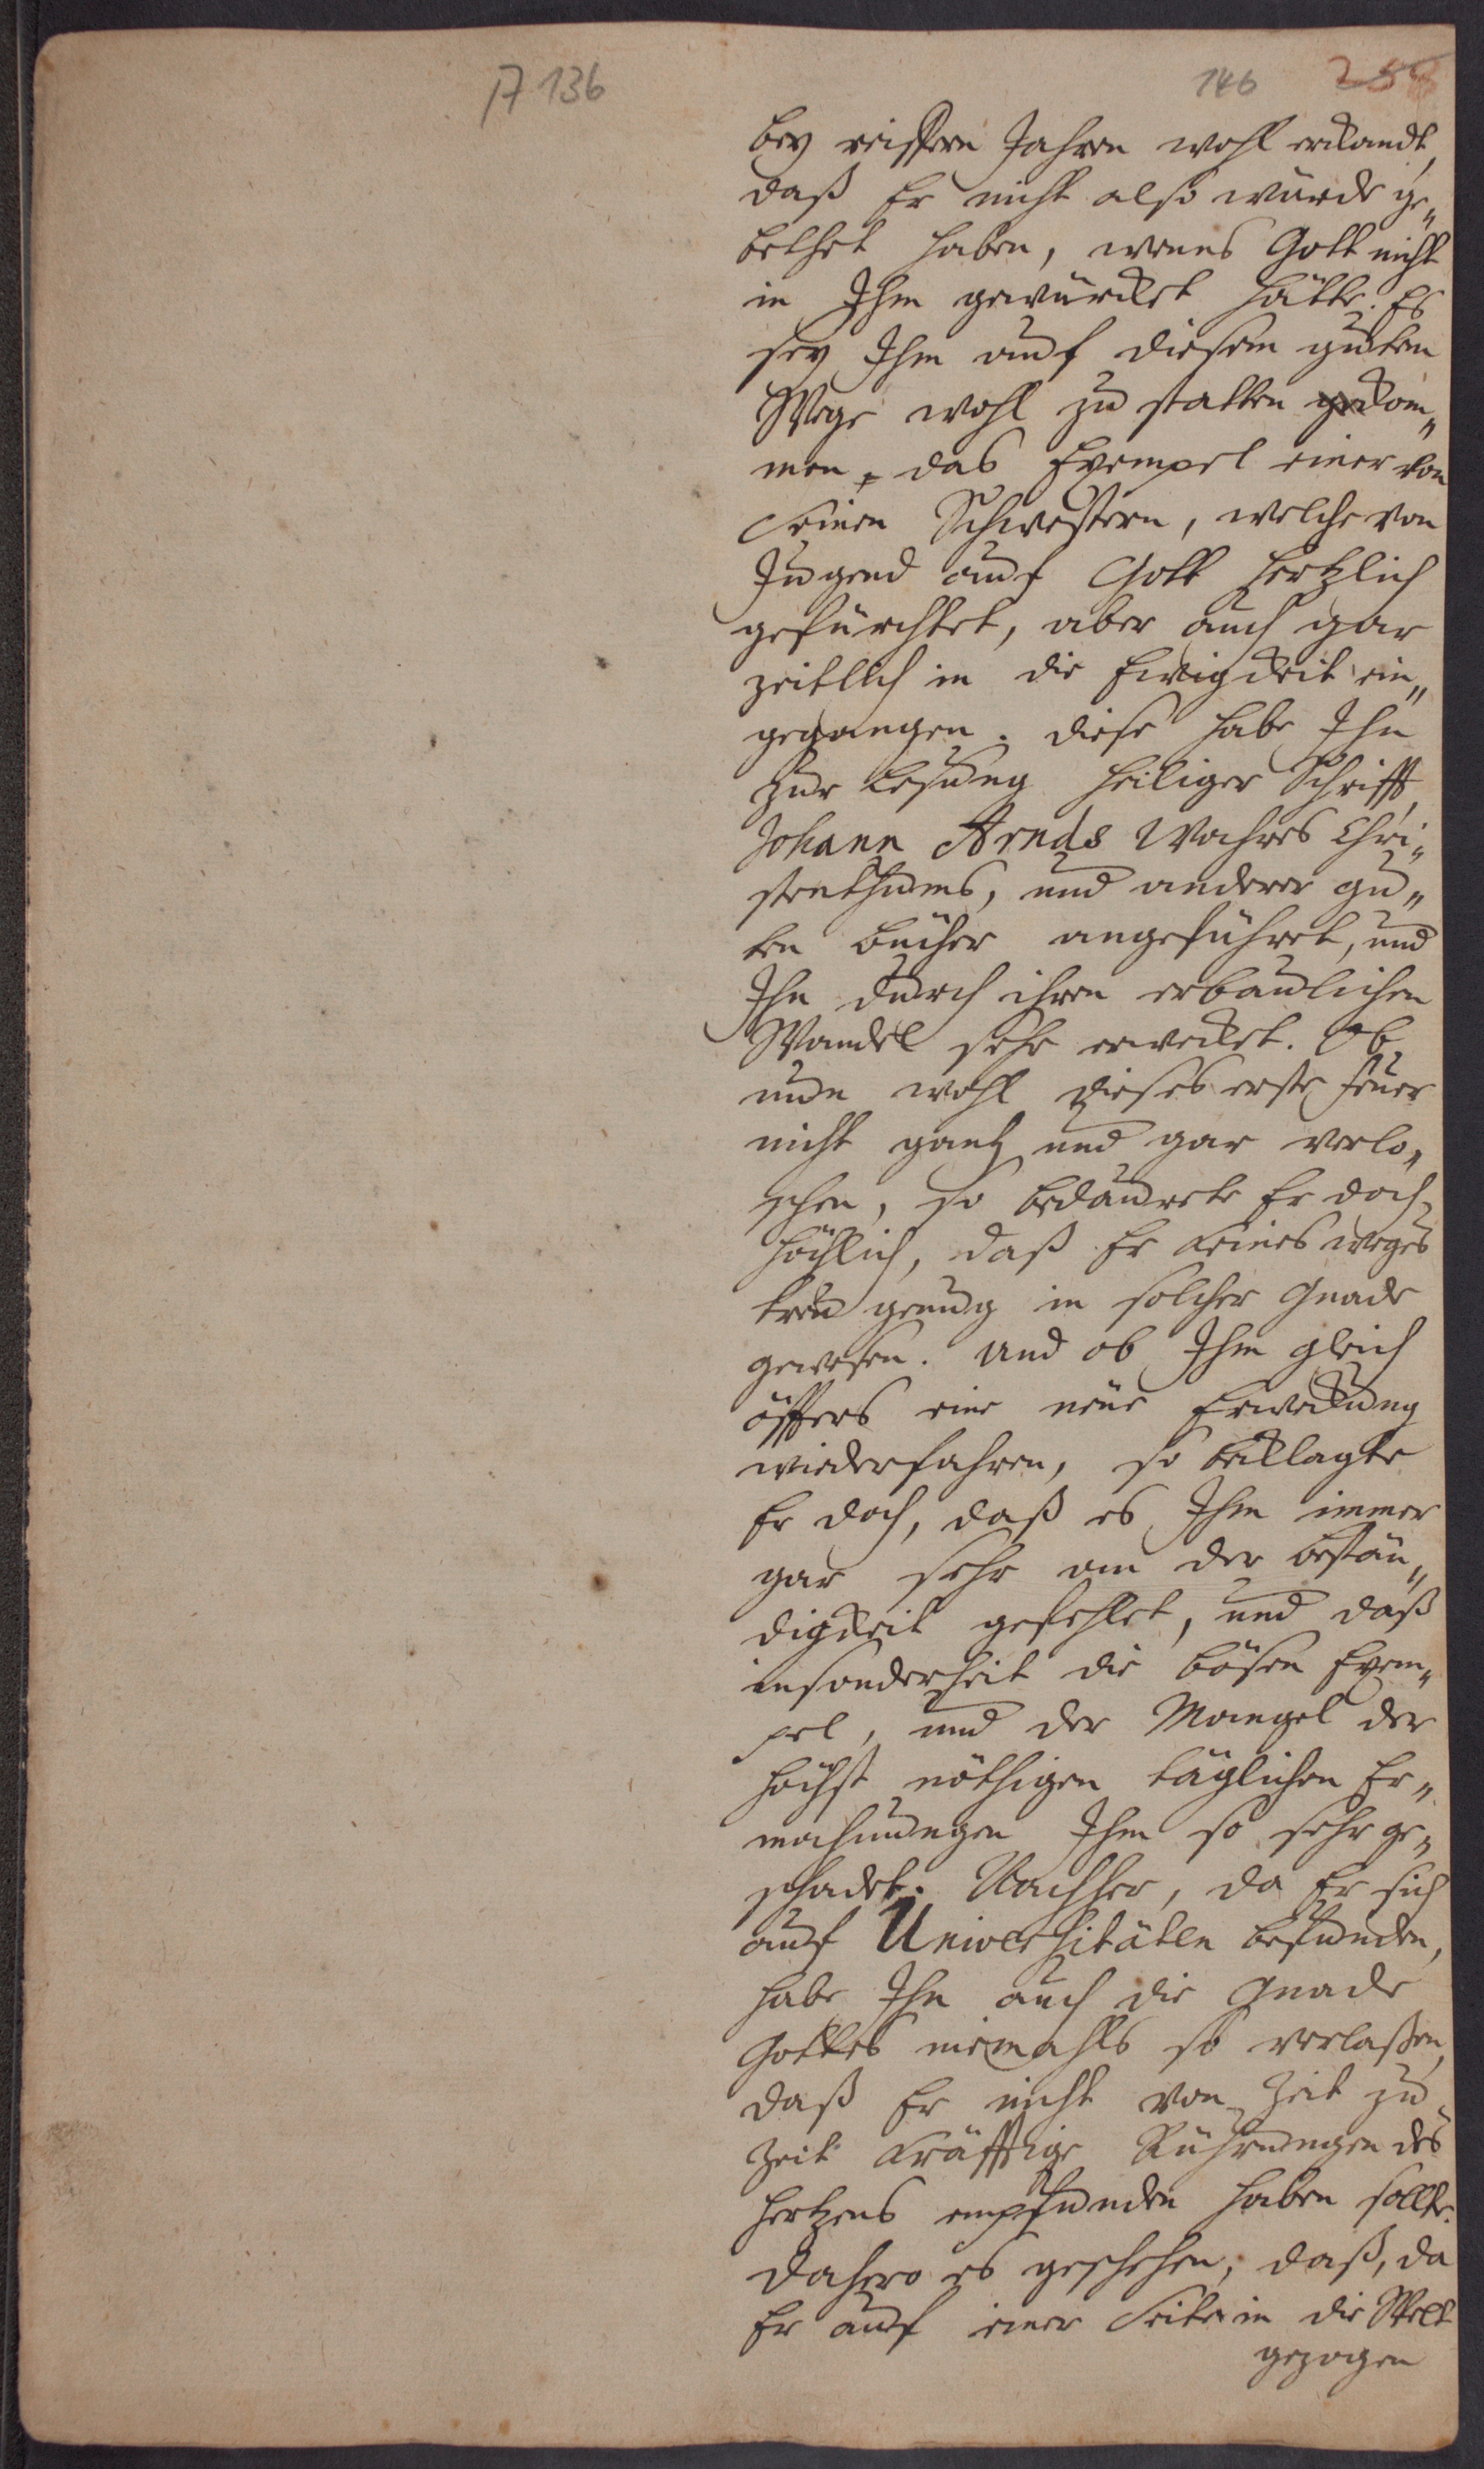 A 136
146 258
bey reiffern Jahren wohl erkandt,
daß Er nicht also würde ge„
bethet haben, wenns Gott nicht
in Ihm gewürcket hätte. Es
sey Ihm auf diesem guten
Wege wohl zu statten gekom„
men, das Exempel einer von
Seinen Schwestern, welche von
Jugend auf Gott hertzlich
gefürchtet, aber auch gar
zeitlich in die Ewigkeit ein„
gegangen. diese habe Ihn
zur Lesung heiliger Schrifft,
Johann Arnds Wahres Chri„
stenthums, und anderer gu„
ten Bücher angeführet, und
Ihn durch ihren erbaulichen
Wandel sehr erwecket. Ob
nun wohl dieses erste Feuer
nicht gantz und gar verlo„
schen, so bedaurete Er doch
höchlich, daß Er keines weges
treu genung in solcher Gnade
gewesen. Und ob Ihm gleich
öffters eine neue Erweckung
wiederfahren, so beklagte
Er doch, daß es Ihm immer
gar sehr an der bestän„
digkeit gefehlet, und daß
insonderheit die bösen Exem„
pel, und der Mangel der
höchst nöthigen täglichen Er„
mahnungen Ihm so sehr ge„
schadet. Nachher, da Er sich
auf Universitäten befunden,
habe Ihn auch die Gnade
Gottes niemahls so verlaßen,
daß Er nicht von Zeit zu
Zeit kräfftige Rührungen des
Hertzens empfunden haben sollte.
Dahero es geschehen, daß, da
Er auf einer Seite in die Welt
gezogen